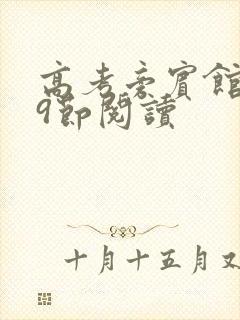 高考旁賓館
9節閱讀
十月十五月又